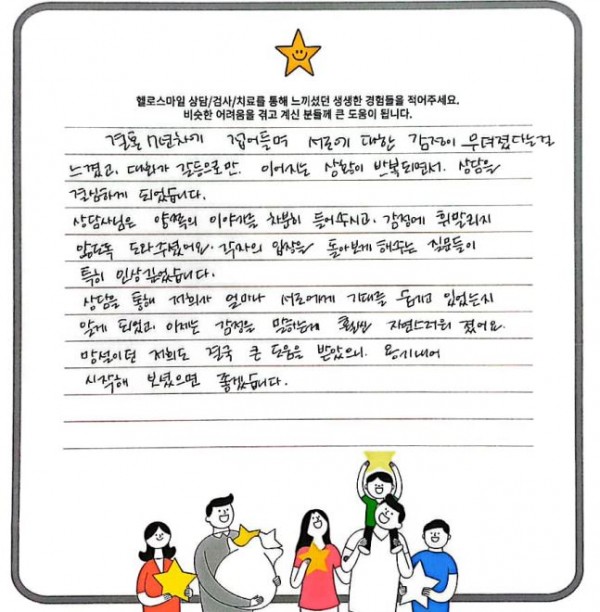 헬로스마일 상담/검사/치료를 통해 느끼셨던 생생한 경험들을 적어주세요.
비슷한 어려움을 겪고 계신 분들께 큰 도움이 됩니다.
결혼 7년차에 접어들며 서로에 대한 감정이 무뎌졌다는걸
느꼈고, 대화가 갈등으로만 이어지는 상황이 반복되면서 상담을
결심하게 되었습니다.
상담사님은 양쪽의 이야기를 차분히 들어주시고, 감정에 휘말리지
않도록 도와주셨어요. 각자의 입장을 돌아보게 해주는 질문들이
특히 인상깊었습니다.
상담을 통해 저희가 얼마나 서로에게 기대를 숨기고 있었는지
알게 되었고, 이제는 감정을 말하는게 훨씬 자연스러워 졌어요.
망설이던 저희도 결국 큰 도움을 받았으니, 용기내어
시작해 보셨으면 좋겠습니다.